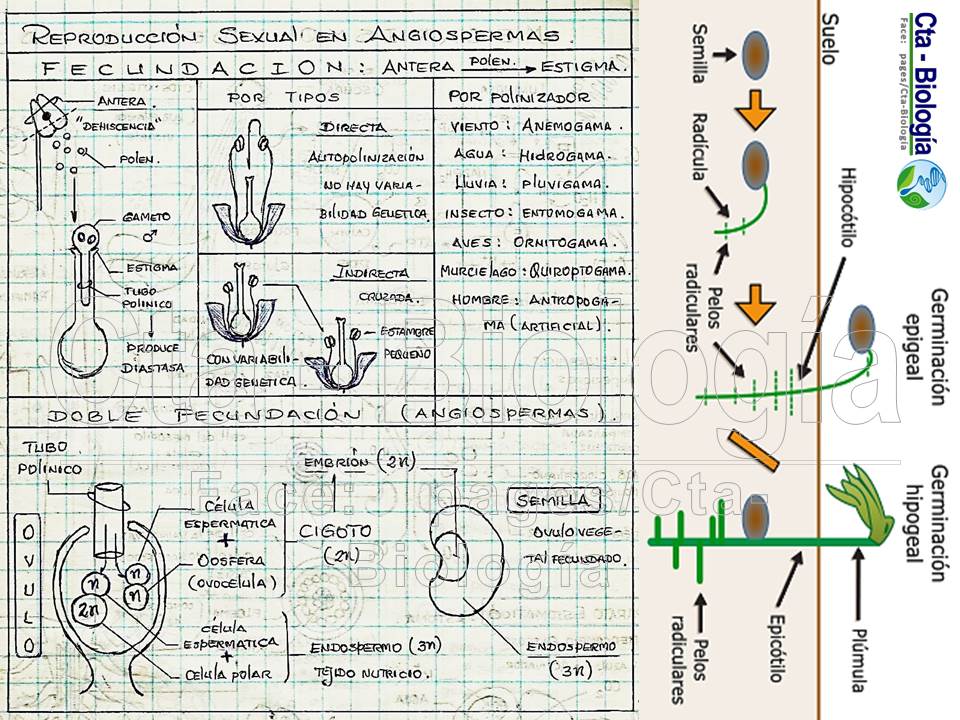 REPRODUCCIÓN SEXUAL EN ANGIOSPERMAS.
FECUNDACION: ANTERA POLEN. ESTIGMA.
ANTERA.
"DEHISCENCIA"
POLEN.
GAMETO
♂
ESTIGMA
TUBO
POLINICO
PRODUCE
DIASTASA
POR TIPOS
DIRECTA
AUTOPOLINIZACIÓN
NO HAY VARIA-
BILIDAD GENETICA.
INDIRECTA
CRUZADA.
ESTAMBRE
PEQUEÑO
CON VARIABILI-
DAD GENETICA.
POR POLINIZADOR
VIENTO: ANEMOGAMA.
AGUA: HIDROGAMA.
LLUVIA: PLUVIGAMA.
INSECTO: ENTOMOGAMA.
AVES: ORNITOGAMA.
MURCIELAGO: QUIROPTOGAMA.
HOMBRE: ANTROPOGA-
MA (ARTIFICIAL).
DOBLE FECUNDACIÓN (ANGIOSPERMAS).
TUBO
POLINICO
OVULO
n
n
n
2n
CÉLULA
ESPERMATICA
+
OOSFERA
(OVOCELULA)
CÉLULA
ESPERMATICA
+
CELULA POLAR
EMBRIÓN (2n)
CIGOTO
(2n)
ENDOSPERMO (3n)
TEJIDO NUTRICIO.
SEMILLA
OVULO VEGE-
TAL FECUNDADO.
ENDOSPERMO
(3n)
Cta - Biología
Face: pages/Cta-Biología
Suelo
Semilla
Radícula
Pelos
radiculares
Hipocótilo
Germinación
epigeal
Germinación
hipogeal
Plúmula
Epicótilo
Pelos
radiculares
Cta - Biología
Face: pages/Cta-
Biología